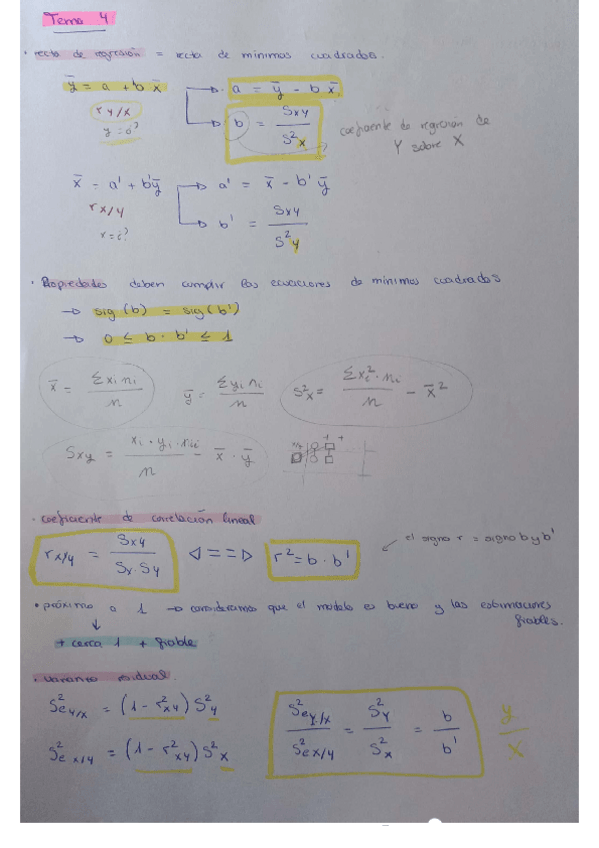 Tema 4
· recta de regresión = recta de mínimos cuadrados.
ȳ = a + b x̄ → a = ȳ - b x̄
r y/x
y = ¿?
→ b = Sxy / S²x
coeficiente de regresión de Y sobre X
x̄ = a' + b'ȳ → a' = x̄ - b' ȳ
r x/y
x = ¿?
→ b' = Sxy / S²y
· Propiedades deben cumplir las ecuaciones de mínimos cuadrados
→ sig (b) = sig (b')
→ 0 ≤ b · b' ≤ 1
x̄ = Σxi ni / n   ȳ = Σyi ni / n   S²x = Σxi² · ni / n - x̄²
Sxy = xi · yi · nij / n - x̄ · ȳ
· coeficiente de correlación lineal
r x/y = Sxy / Sx · Sy ◁==▷ r² = b · b'
el signo r = signo b y b'
• próximo a 1 → consideramos que el modelo es bueno y las estimaciones fiables.
↓
+ cerca 1 + fiable
· varianza residual.
S²e y/x = (1 - r²xy) S²y
S²e x/y = (1 - r²xy) S²x
S²e y/x / S²e x/y = S²y / S²x = b / b'
y / x